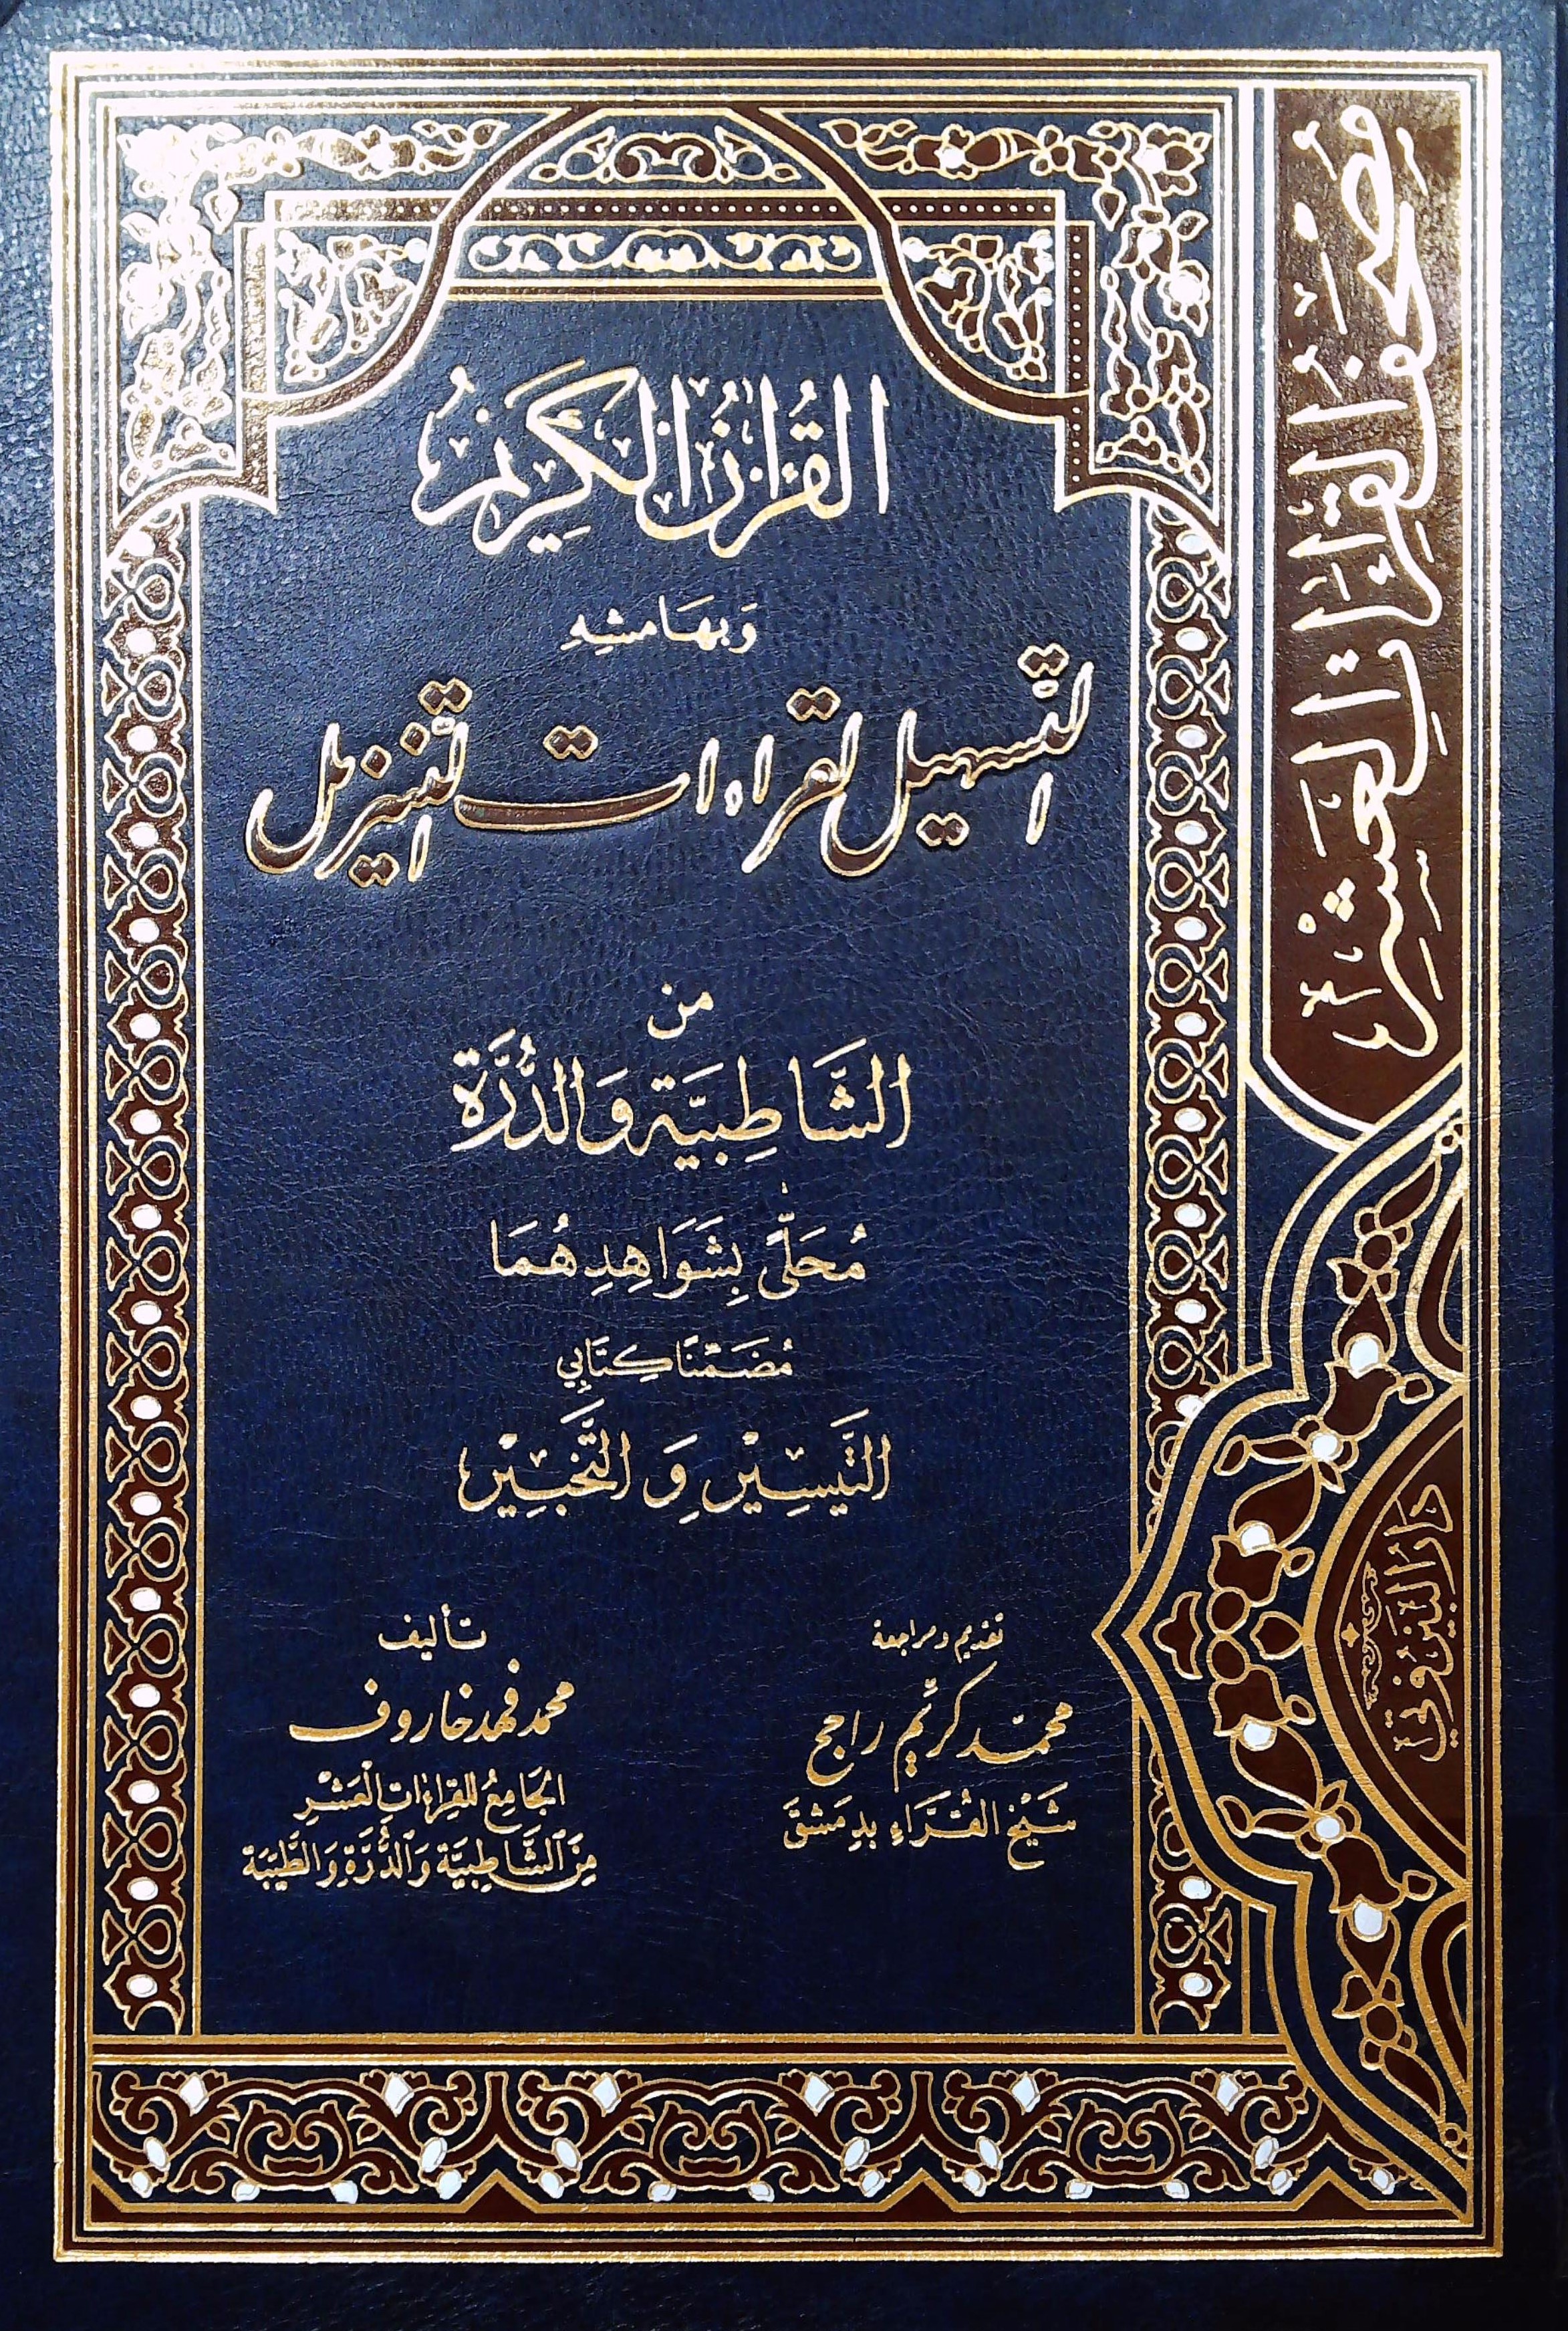 القرآن الكريم
وبهامشه
التسهيل لقراءات التنزيل
من
الشَّاطِبيَّة وَالدُّرَّة
مُحَلَّىً بِشَوَاهِدِهُمَا
مُضَمَّنًا كِتَابِي
التَّيسِيْر وَ التَّحْبِيْر
تقديم ومراجعة
محمّد كريِّم راجح
شَيْخ القُرَّاءِ بِدِمَشْقَ
تأليف
محمد فهد خاروف
الجَامِعُ للقِراءَاتِ الْعَشْرِ
مِنَ الشَّاطِبيَّة وَالدُّرَّةِ وَالطَّيِّبَة
مُصْحَفُ القِرَاءَاتِ العَشْرِ
دَارُ البَيْرُوتِي